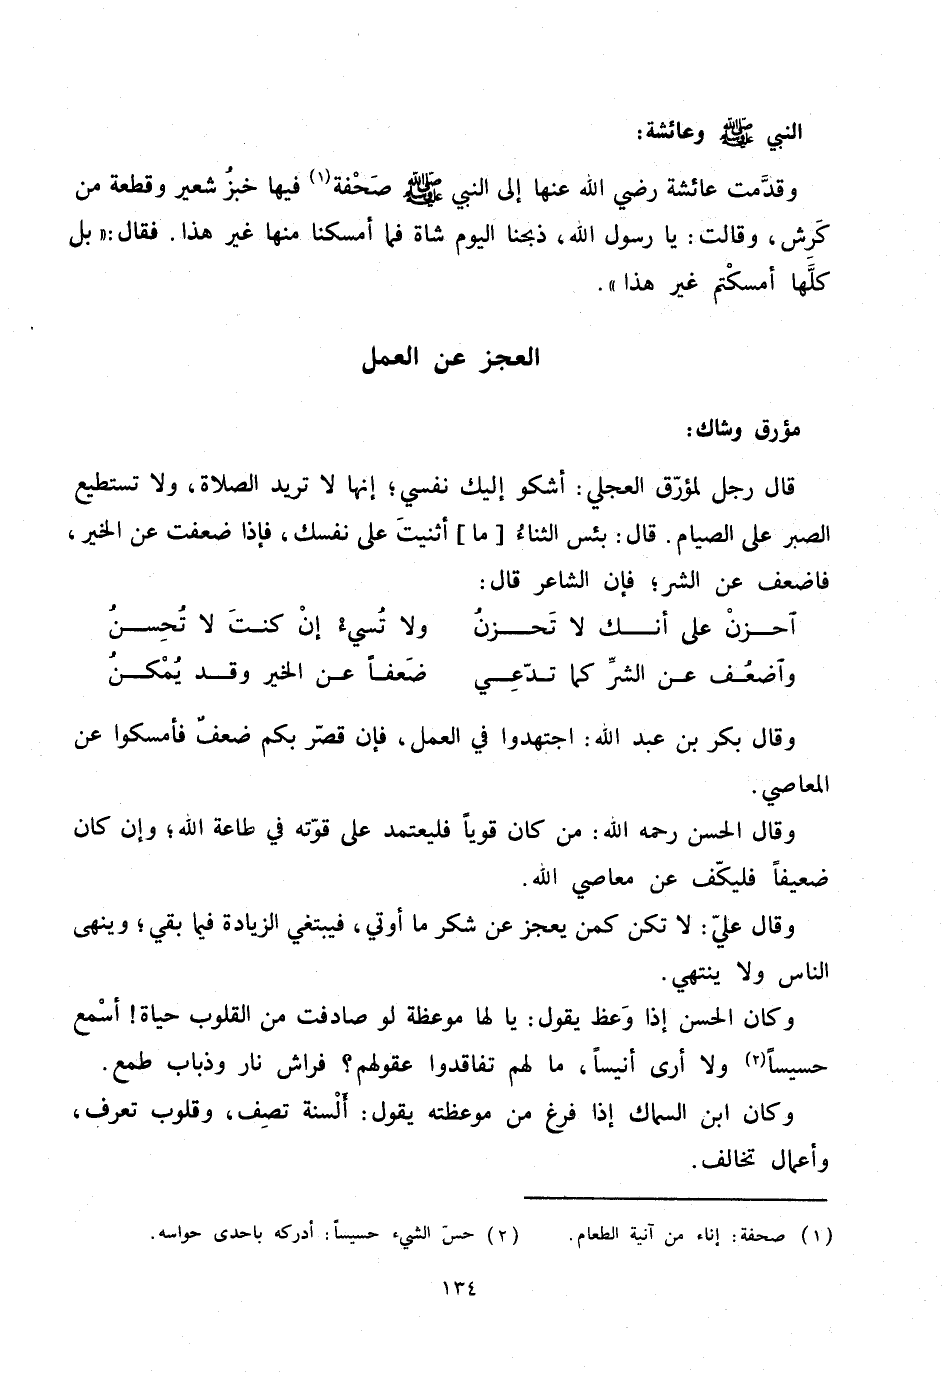 النبي ﷺ وعائشة:
وقدَّمت عائشة رضي الله عنها إلى النبي ﷺ صَحْفة(١) فيها خبزُ شعير وقطعة من
كَرِش، وقالت: يا رسول الله، ذبحنا اليوم شاة فما أمسكنا منها غير هذا. فقال:« بل
كلَّها أمسكْتم غير هذا ».
العجز عن العمل
مؤرق وشاك:
قال رجل لمؤرّق العجلي: أشكو إليك نفسي؛ إنها لا تريد الصلاة، ولا تستطيع
الصبر على الصيام. قال: بئس الثناءُ [ ما ] أثنيتَ على نفسك، فإذا ضعفت عن الخير،
فاضعف عن الشر؛ فإن الشاعر قال:
آحـزنْ على أنـك لا تَحـزنُ ولا تُسيءُ إنْ كنـتَ لا تُحِسـنُ
وآضعُـف عـن الشرِّ كما تـدّعِـي ضَعفـاً عـن الخير وقـد يُمْكـنُ
وقال بكر بن عبد الله: اجتهدوا في العمل، فإن قصّر بكم ضعفٌ فأمسكوا عن
المعاصي.
وقال الحسن رحمه الله: من كان قوياً فليعتمد على قوّته في طاعة الله؛ وإن كان
ضعيفاً فليكّف عن معاصي الله.
وقال عليّ: لا تكن كمن يعجز عن شكر ما أوتي، فيبتغي الزيادة فيما بقي؛ وينهى
الناس ولا ينتهي.
وكان الحسن إذا وَعظ يقول: يا لها موعظة لو صادفت من القلوب حياة! أسْمع
حسيساً(٢) ولا أرى أنيساً، ما لهم تفاقدوا عقولهم؟ فراش نار وذباب طمع.
وكان ابن السماك إذا فرغ من موعظته يقول: أَلْسنة تصِف، وقلوب تعرف،
وأعمال تخالف.
(١) صحفة: إناء من آنية الطعام. (٢) حسّ الشيء حسيساً: أدركه باحدى حواسه.
١٣٤